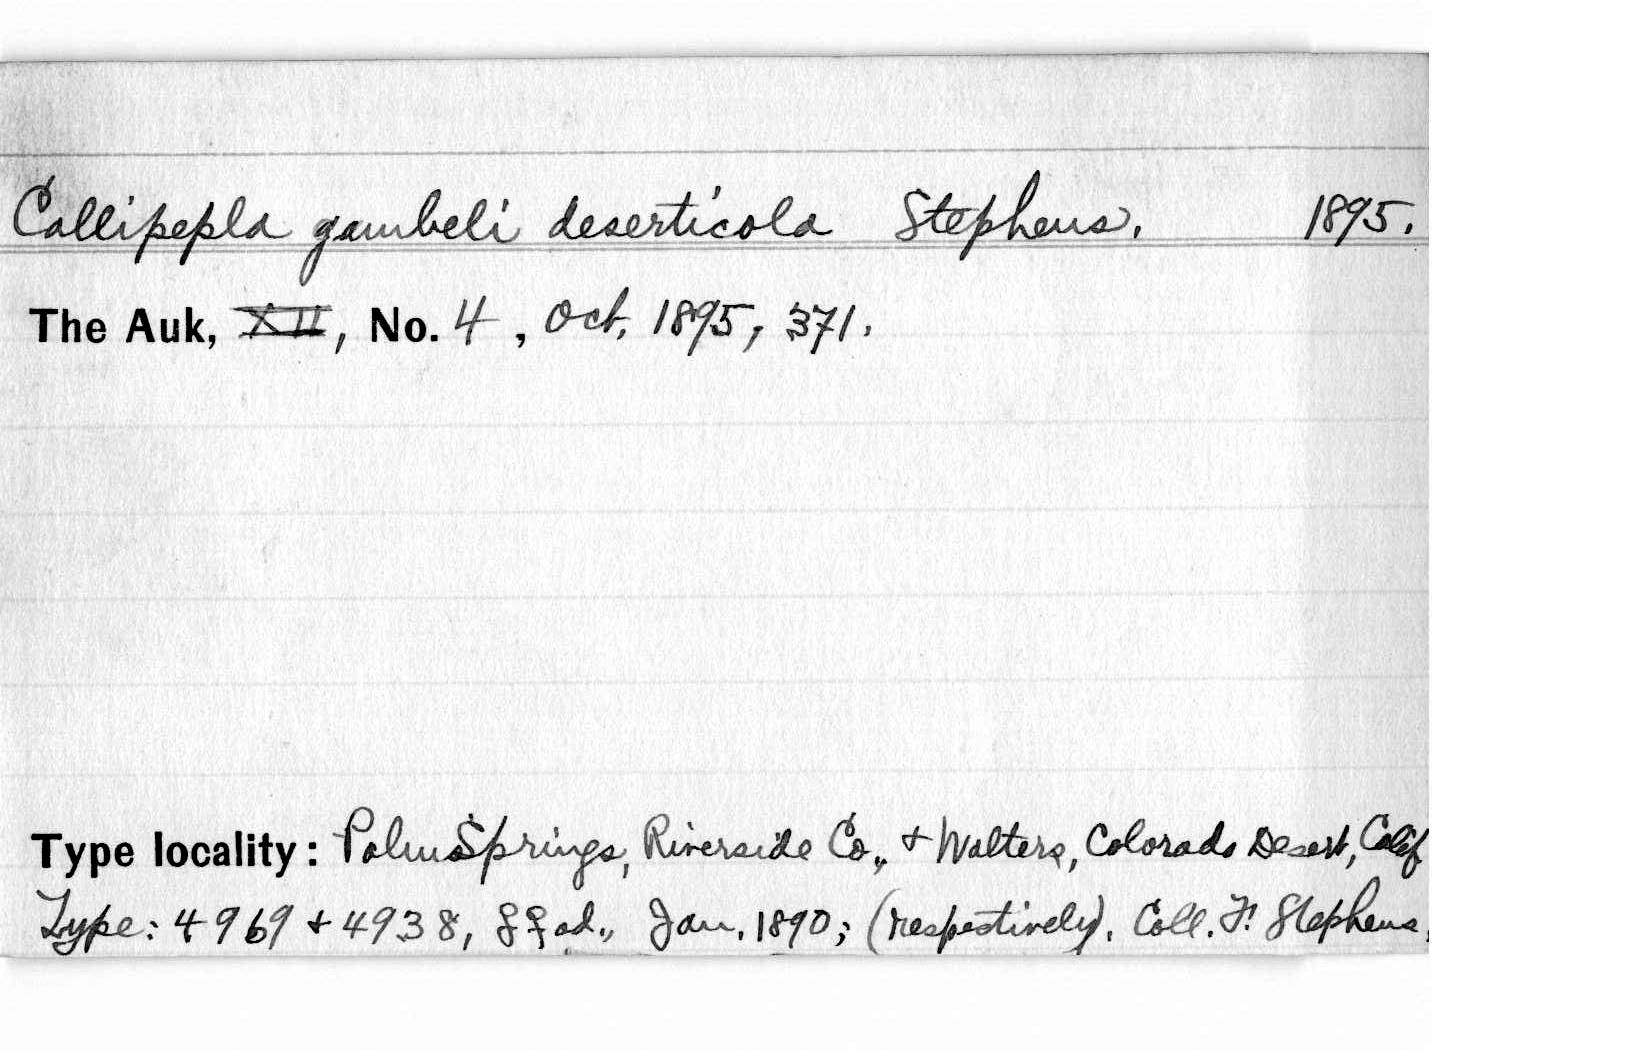 Callipepla gambeli deserticola Stephens. 1895.
The Auk, XII, No. 4, Oct, 1895, 371.
Type locality: Palm Springs, Riverside Co., + Walters, Colorado Desert, Calif
Type: 4969 + 4938, ♀ ad., Jan. 1890; (respectively). Coll. F. Stephens.